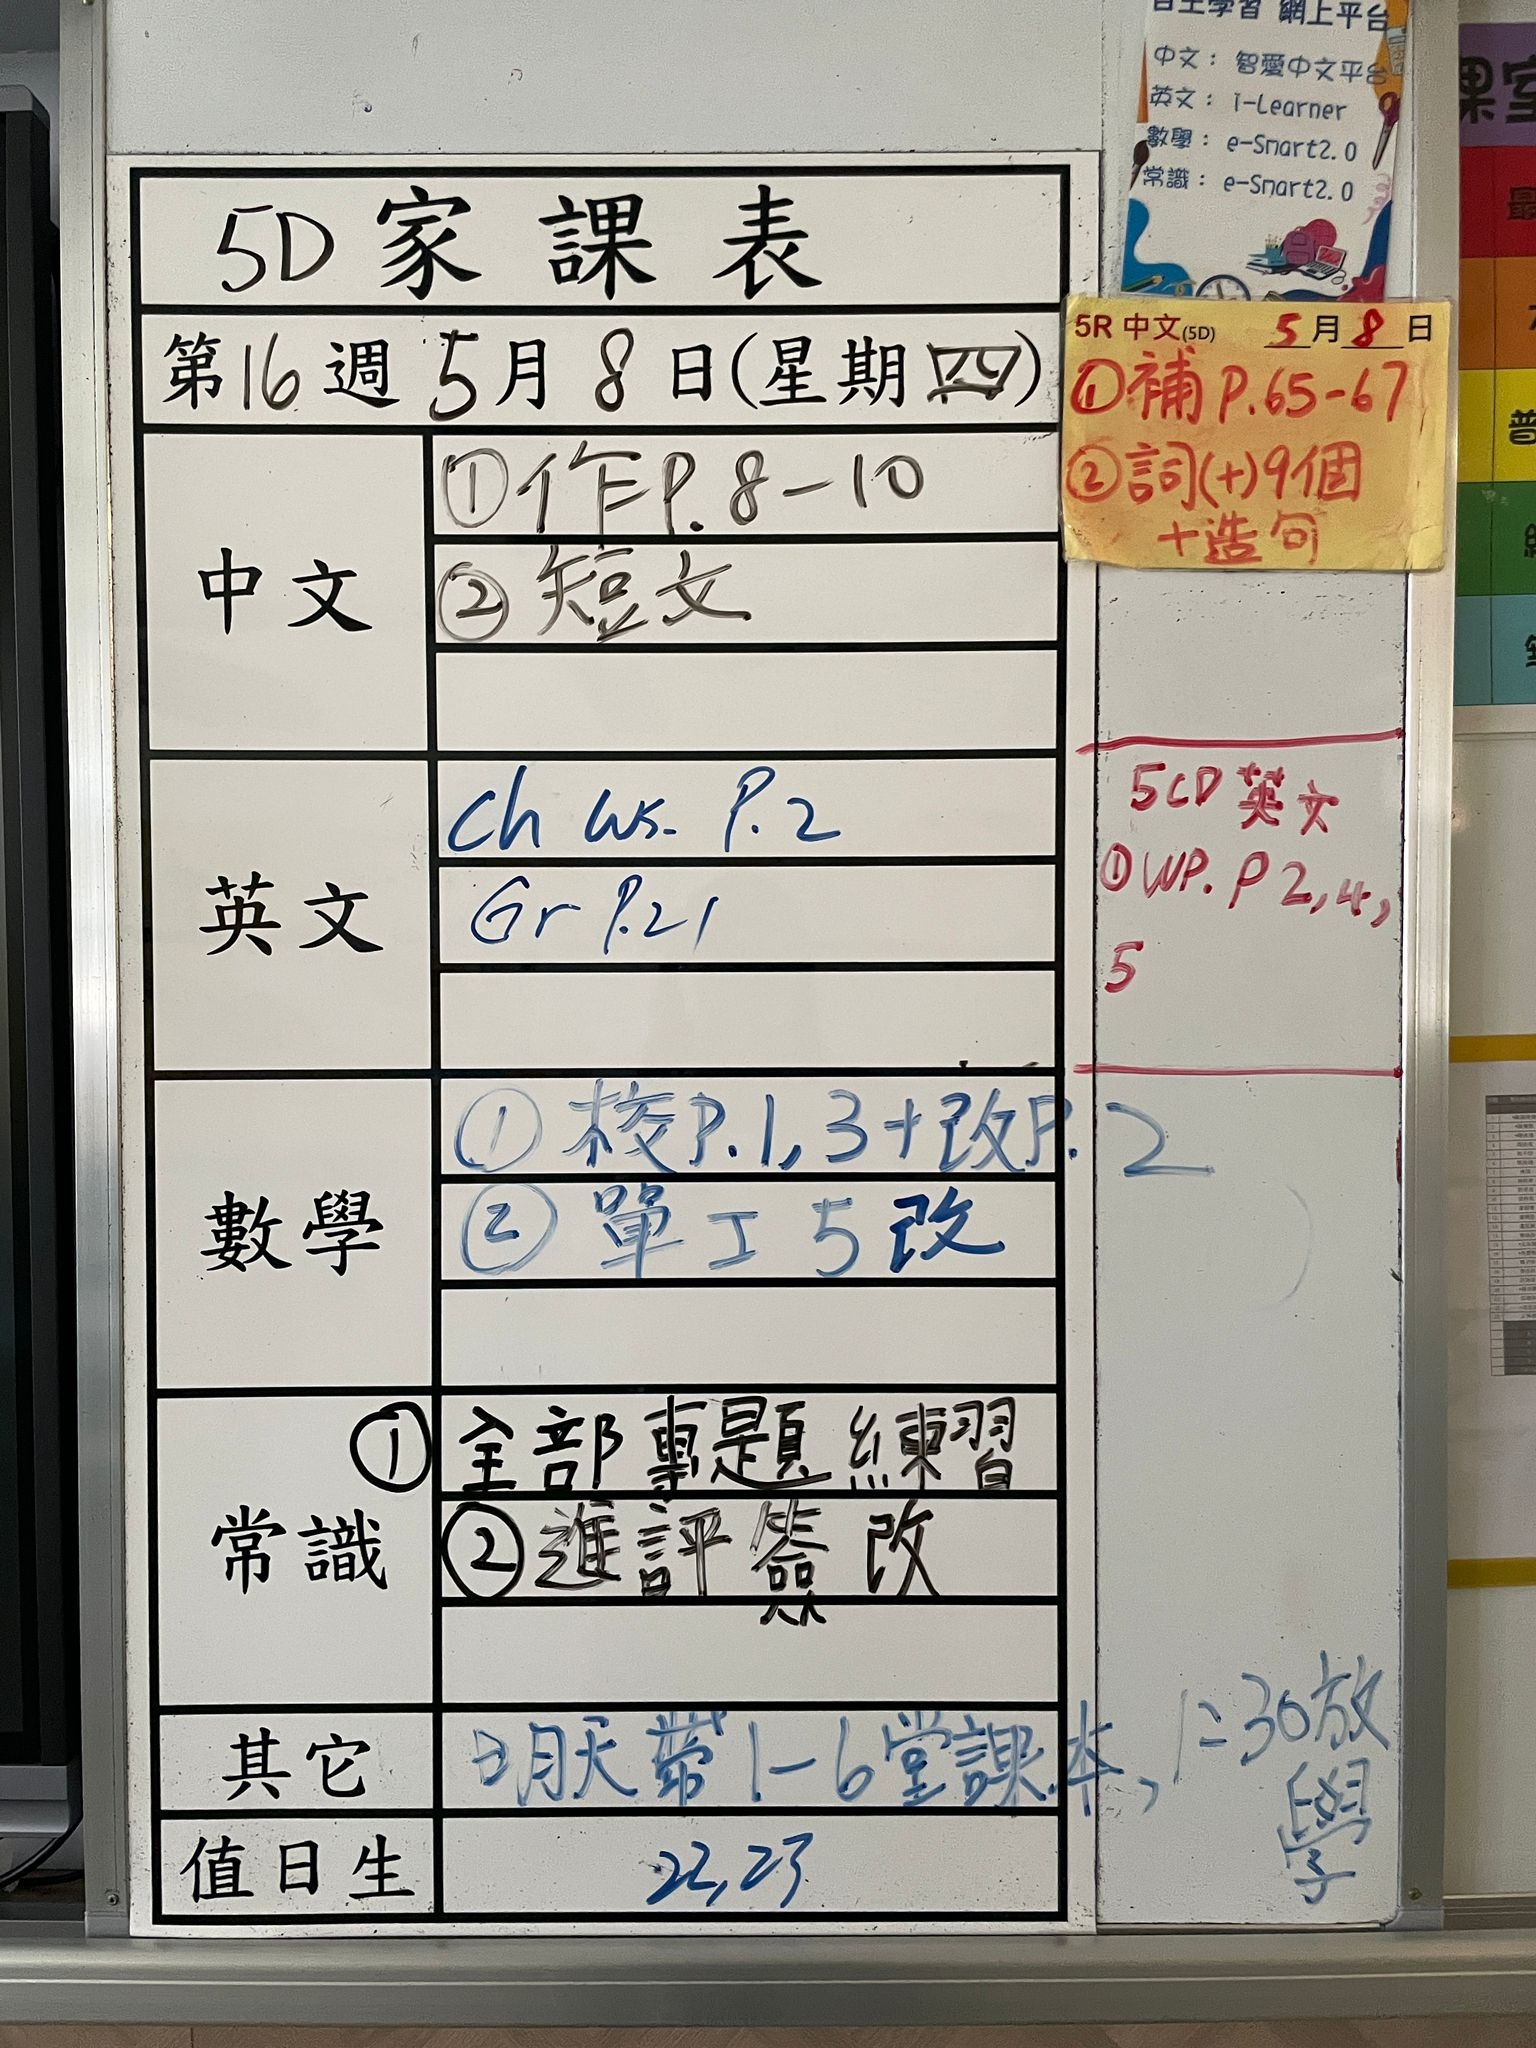 自主學習 網上平台
中文： 智愛中文平台
英文： i-Learner
數學： e-Smart2.0
常識： e-Smart2.0
5D 家課表
第16週 5月8日(星期四)
中文
①作P.8-10
②短文
英文
Ch Ws. P.2
Gr P.21
數學
①校P.1,3+改P.2
②單工5改
常識
①全部專題練習
②進評簽改
其它
明天帶1-6堂課本, 1:30放
學
值日生
22,23
5R 中文(5D) 5月8日
①補P.65-67
②詞(+)9個
+造句
5CD英文
①WP. P2,4,
5
課室
最
普